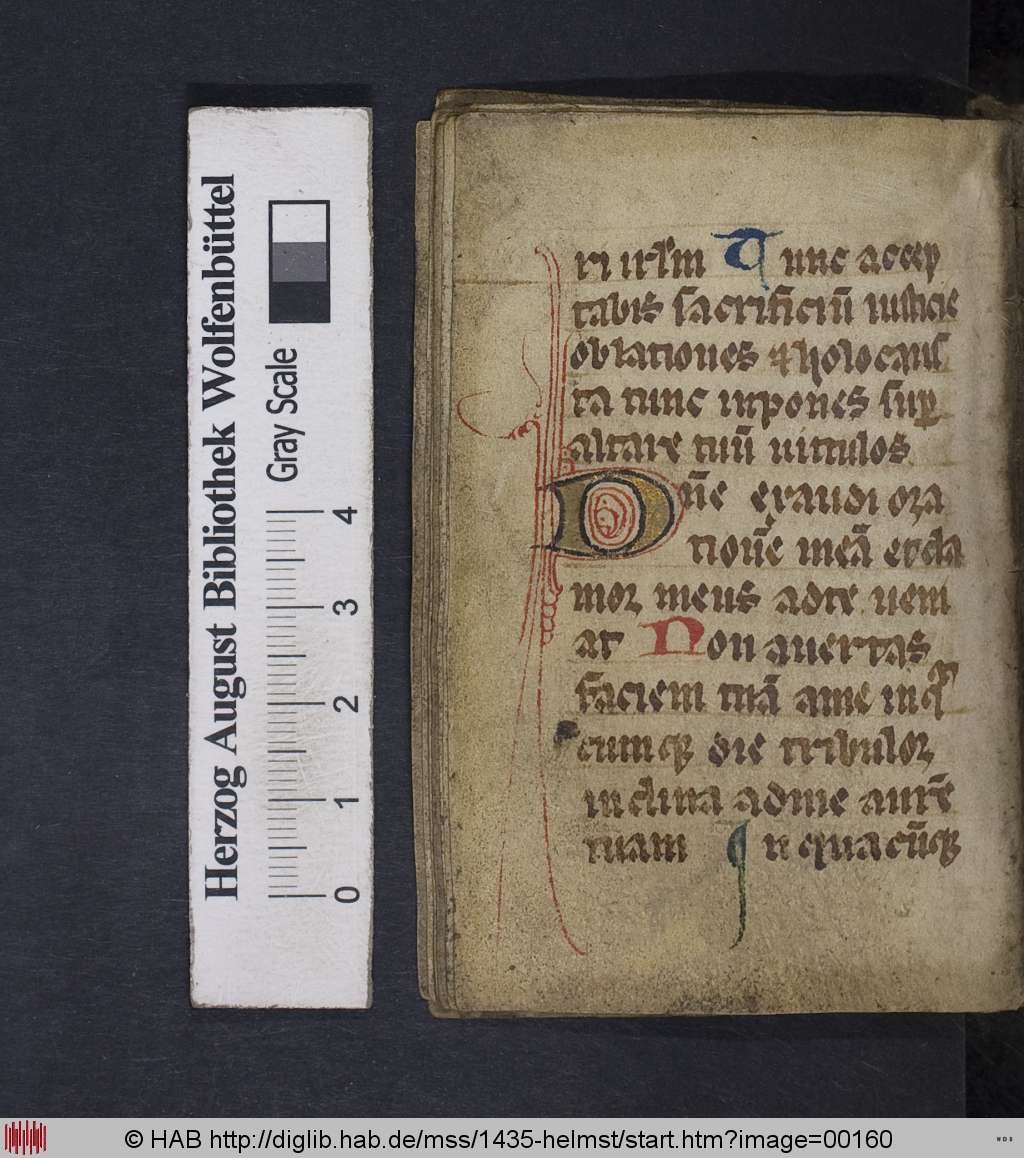 Herzog August Bibliothek Wolfenbüttel
Gray Scale
0 1 2 3 4
ri irl̄m Tunc accep
tabis sacrificiū iusticie
oblationes ⁊ holocaus
ta tunc inpones sup̱
altare tuū uitulos
Dn̄e exaudi ora
tionē meā et cla
mor meus ad te ueni
at Non auertas
faciem tuā a me in q̄
cumqꝫ die tribulor
inclina ad me aurē
tuam In quacūqꝫ
© HAB http://diglib.hab.de/mss/1435-helmst/start.htm?image=00160